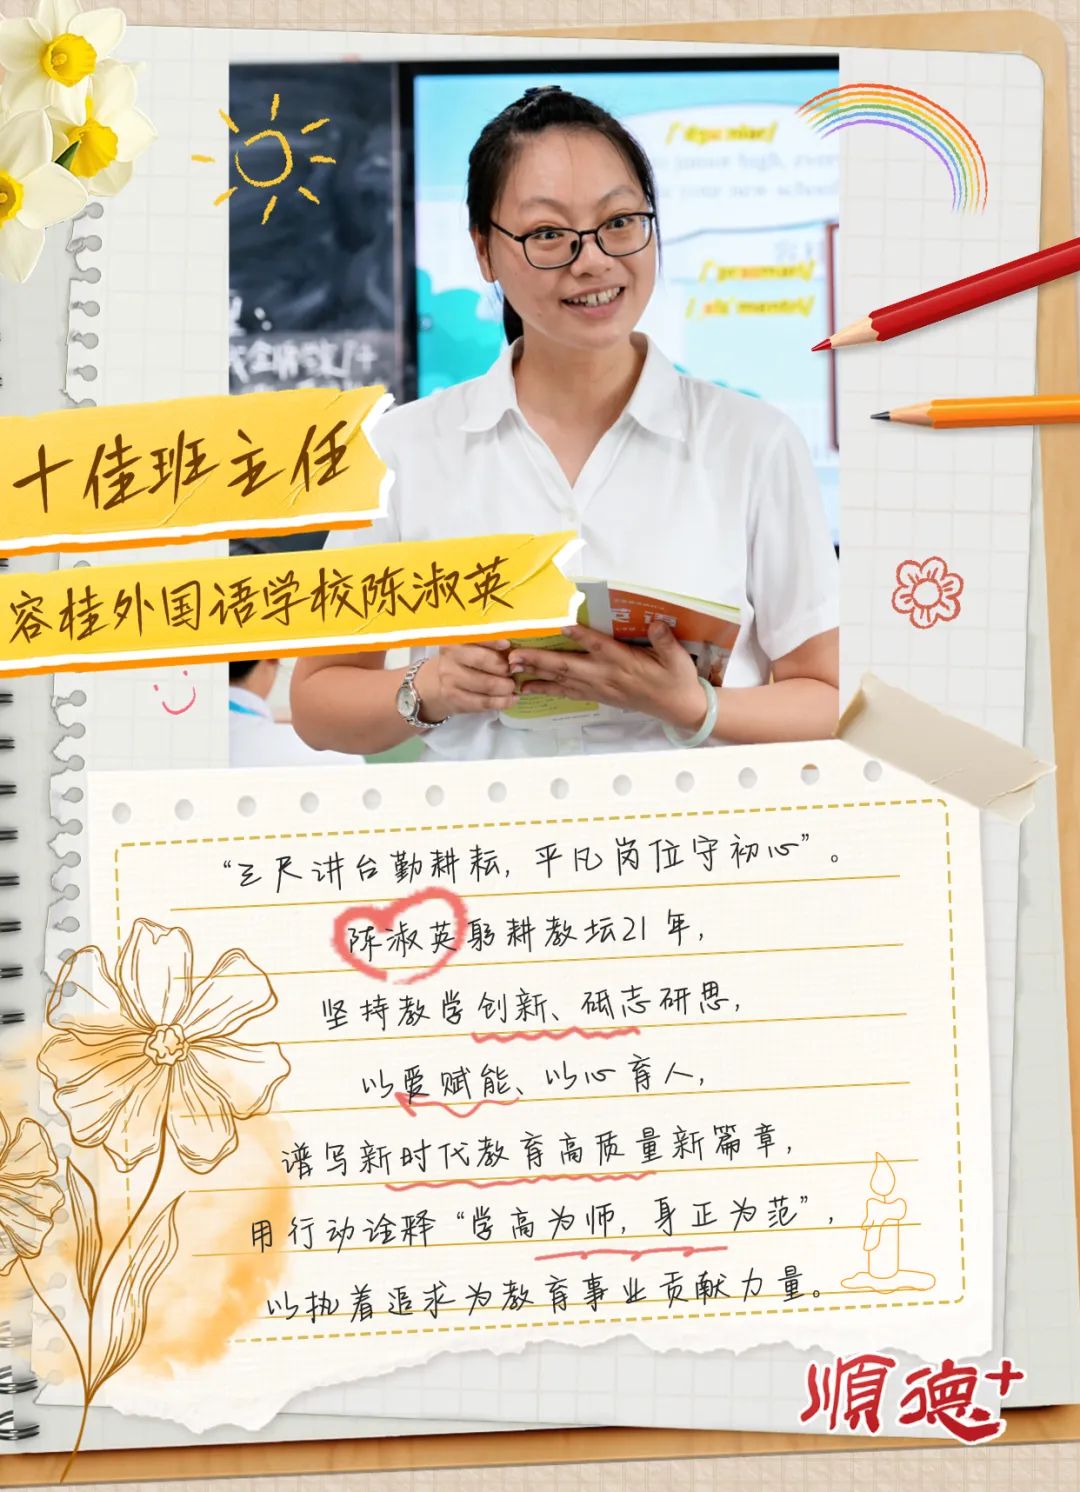 /ˈdʒuːniə/
junior high, every
your new school
十佳班主任
容桂外国语学校陈淑英
英语
“三尺讲台勤耕耘，平凡岗位守初心”。
陈淑英躬耕教坛21年，
坚持教学创新、砥志研思，
以爱赋能、以心育人，
谱写新时代教育高质量新篇章，
用行动诠释“学高为师，身正为范”，
以执着追求为教育事业贡献力量。
順德+